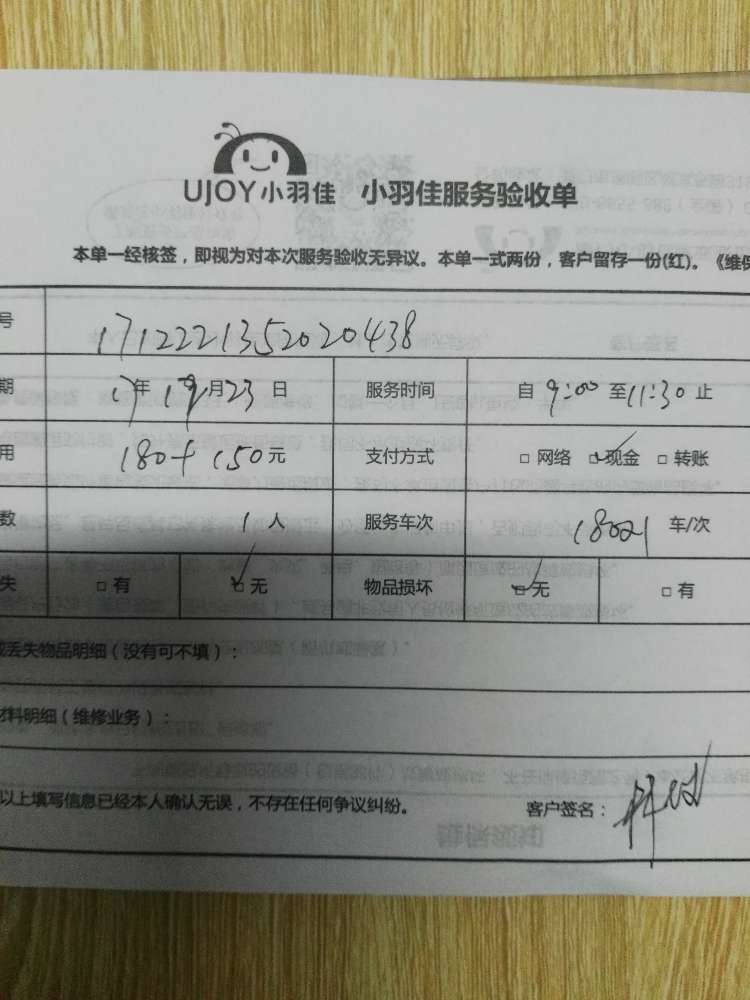 UJOY小羽佳 小羽佳服务验收单
本单一经核签，即视为对本次服务验收无异议。本单一式两份，客户留存一份(红)。《维保
号 1712221352020438
期 17年 12月23日 服务时间 自 9:00 至 11:30 止
用 180+150元 支付方式 □ 网络 ☑现金 □ 转账
数 1 人 服务车次 车/次
失 □ 有 ☑ 无 物品损坏 ☑ 无 □ 有
或丢失物品明细（没有可不填）：
材料明细（维修业务）：
以上填写信息已经本人确认无误，不存在任何争议纠纷。 客户签名：